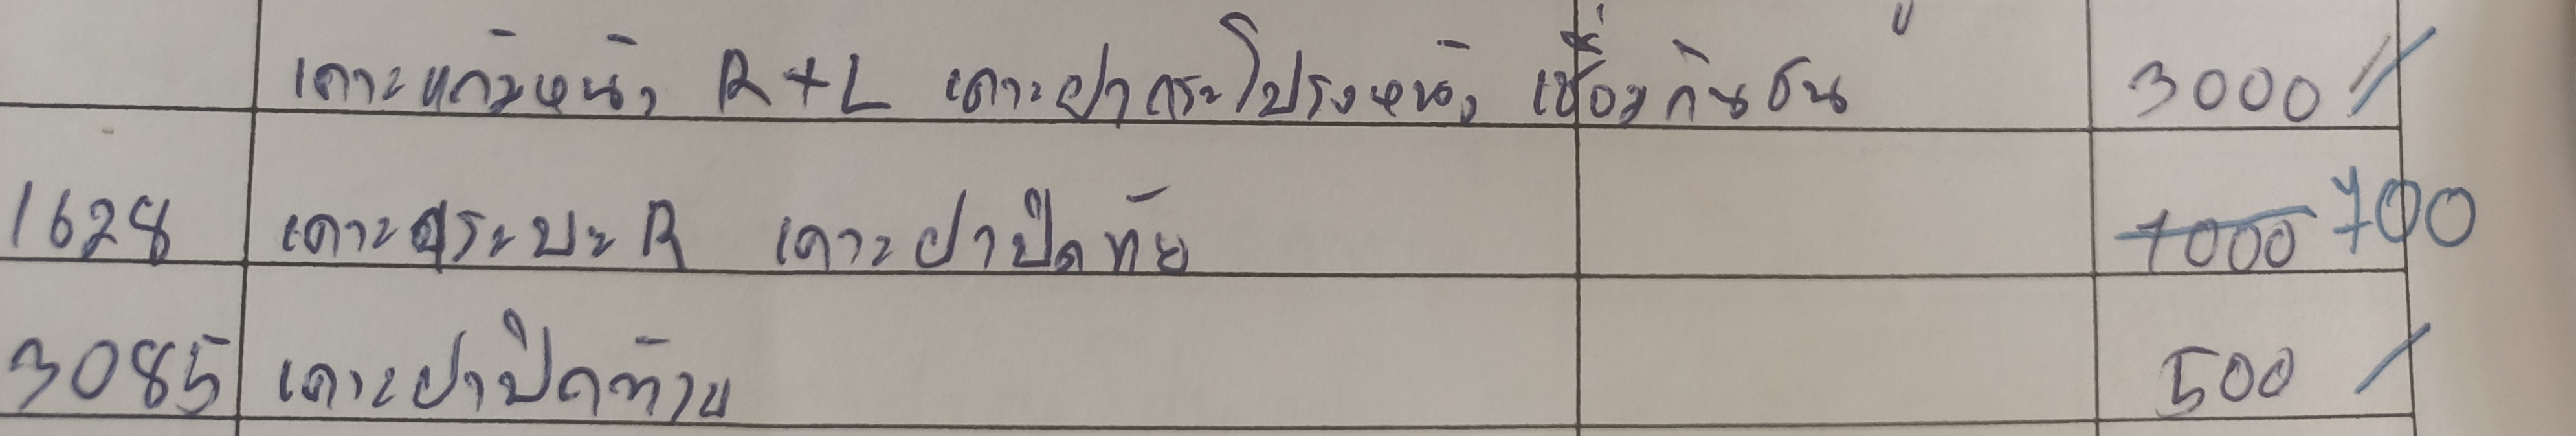 เคาะแก้มหน้า R+L เคาะฝากระโปรงหน้า เชื่อมกันชน 3000
1628 เคาะกระบะ R เคาะฝาปิดท้าย 1000 700
3085 เคาะฝาปิดท้าย 500